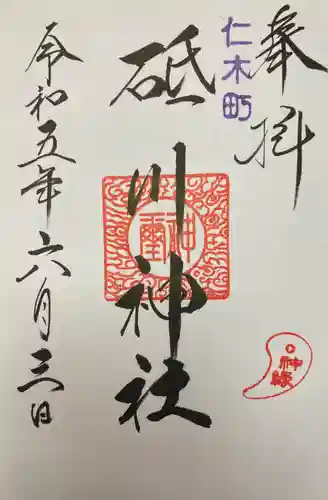 奉拝
仁木町
砥川神社
神璽
神緣
令和五年六月三日